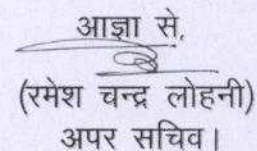 आज्ञा से,
(रमेश चन्द्र लोहनी)
अपर सचिव।